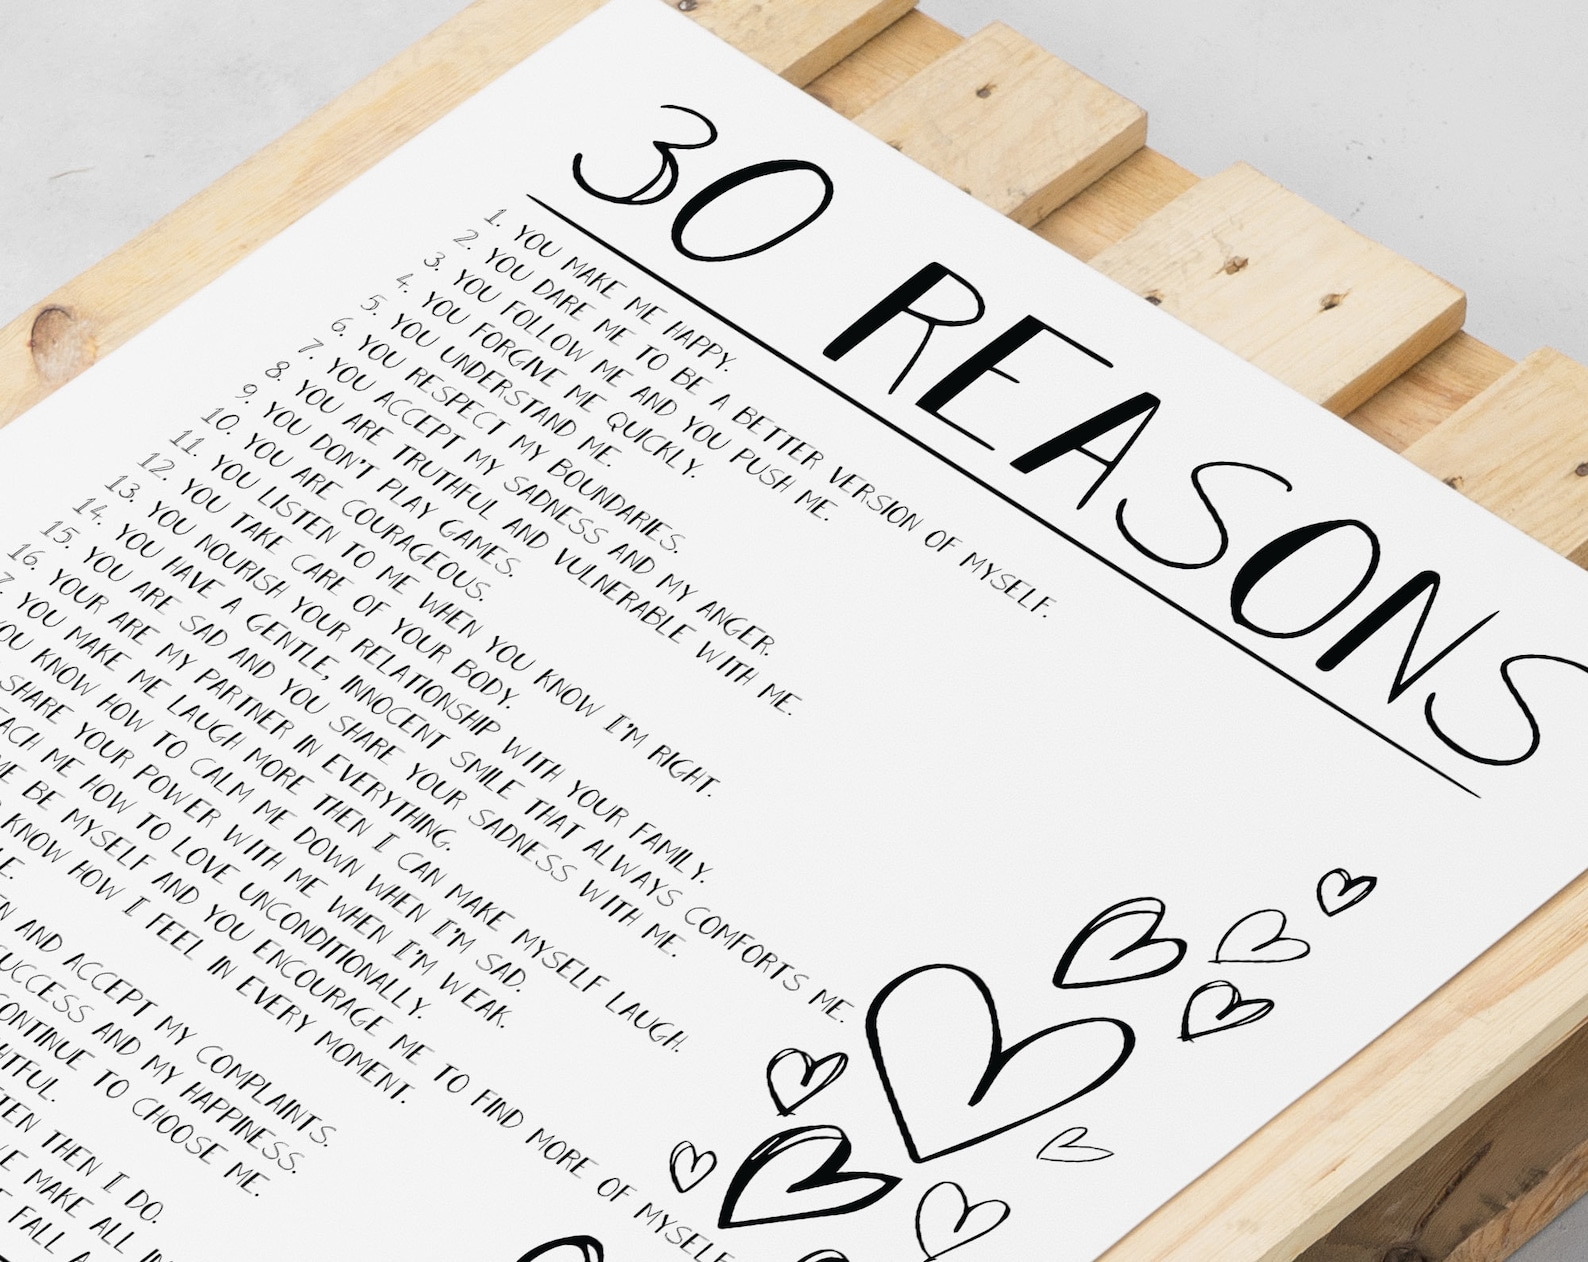 30 REASONS
1. YOU MAKE ME HAPPY.
2. YOU DARE ME TO BE A BETTER VERSION OF MYSELF.
3. YOU FOLLOW ME AND YOU PUSH ME.
4. YOU FORGIVE ME QUICKLY.
5. YOU UNDERSTAND ME.
6. YOU RESPECT MY BOUNDARIES.
7. YOU ACCEPT MY SADNESS AND MY ANGER.
8. YOU ARE TRUTHFUL AND VULNERABLE WITH ME.
9. YOU DON'T PLAY GAMES.
10. YOU ARE COURAGEOUS.
11. YOU LISTEN TO ME WHEN YOU KNOW I'M RIGHT.
12. YOU TAKE CARE OF YOUR BODY.
13. YOU NOURISH YOUR RELATIONSHIP WITH YOUR FAMILY.
14. YOU HAVE A GENTLE, INNOCENT SMILE THAT ALWAYS COMFORTS ME.
15. YOU ARE SAD AND YOU SHARE YOUR SADNESS WITH ME.
16. YOUR ARE MY PARTNER IN EVERYTHING.
7. YOU MAKE ME LAUGH MORE THEN I CAN MAKE MYSELF LAUGH.
YOU KNOW HOW TO CALM ME DOWN WHEN I'M SAD.
SHARE YOUR POWER WITH ME WHEN I'M WEAK.
ACH ME HOW TO LOVE UNCONDITIONALLY.
ME BE MYSELF AND YOU ENCOURAGE ME TO FIND MORE OF MYSELF
KNOW HOW I FEEL IN EVERY MOMENT.
AND ACCEPT MY COMPLAINTS.
UCCESS AND MY HAPPINESS.
ONTINUE TO CHOOSE ME.
HTFUL.
TEN THEN I DO.
MAKE ALL IN
FALL A